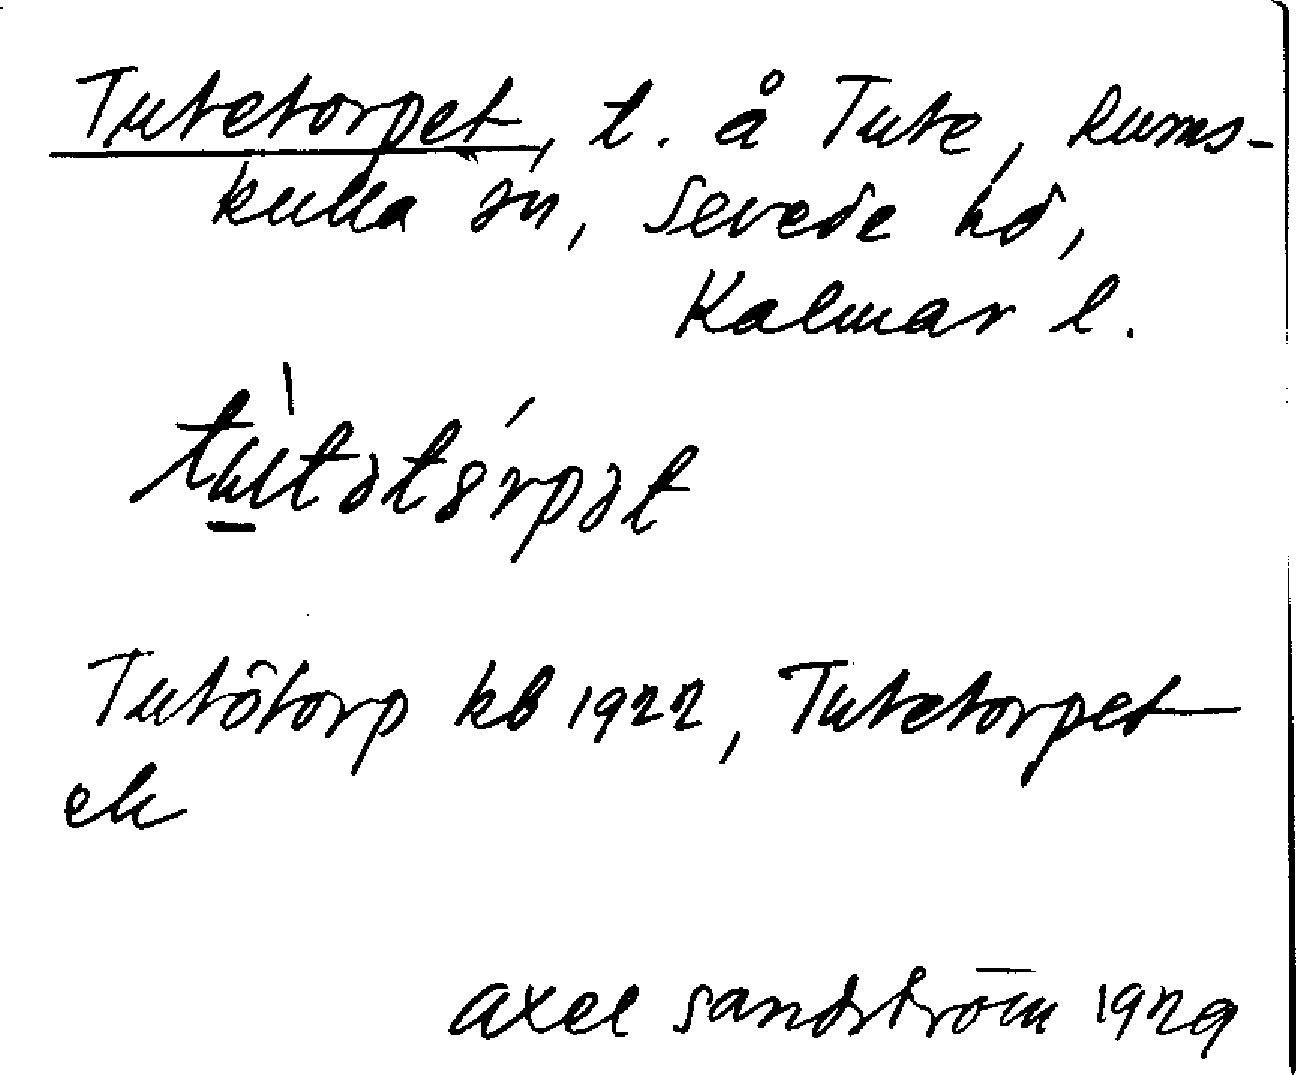 Tutetorpet, t. å Tute, Rums-
kulla sn, Sevede hd,
Kalmar l.
tù̲tətórpət
Tutötorp kb 1922, Tutetorpet
ek
Axel Sandström 1929